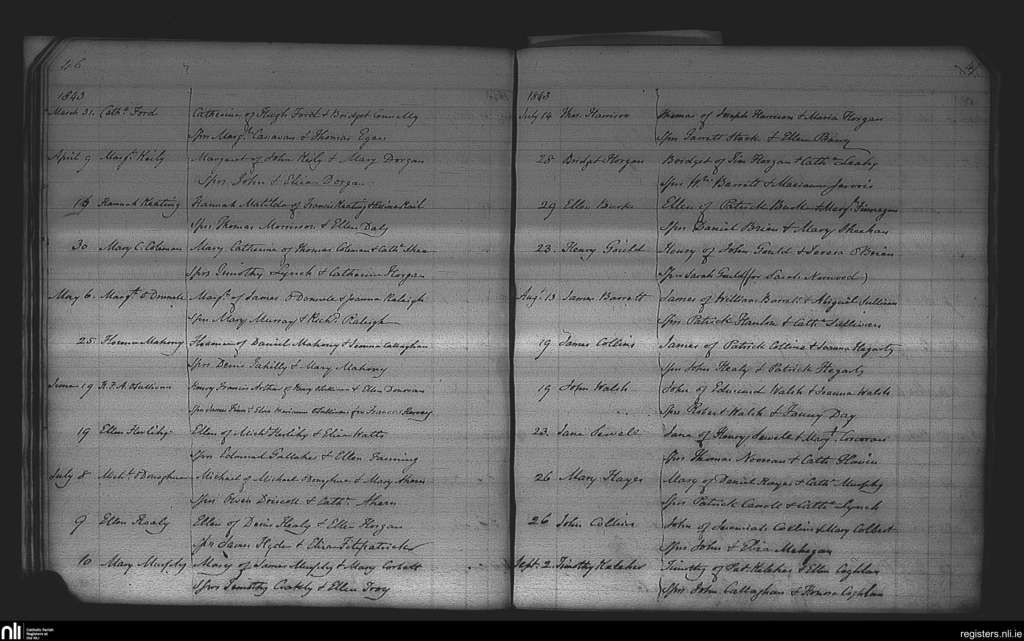 46
1843
March 31. Cathe. Ford Catherine of Hugh Ford & Bridget Connelly
Sprs Margt. Canavan & Thomas Egan
April 9 Margt. Keily Margaret of John Keily & Mary Dorgan
Sprs John & Eliza Dorgan
16 Hannah Keating Hannah Matilda of Francis Keating &
Sprs Thomas Morrison & Ellen Daly
30 Mary C. Coleman Mary Catherine of Thomas Coleman & Cathe. Shea
Sprs Timothy Lynch & Catherine Horgan
May 6. Margt. O'Donnell Margt. of James O'Donnell & Joanna Raleigh
Sprs Mary Murray & Richd. Raleigh
25. Mahony of Daniel Mahony & Callaghan
Sprs Denis & Mary Mahony
June 19 H.F.A. O'Sullivan Henry Francis Arthur of Henry & Ellen Donovan
Sprs James
19 Ellen Herlihy Ellen of Michl. Herlihy & Eliza Watts
Sprs Edmund Gallaher & Ellen Fanning
July 8 Michl. Donoghue Michael of Michael Donoghue & Mary Ahern
Sprs Owen Driscoll & Cathe. Ahern
9 Ellen Healy Ellen of Denis Healy & Ellen Horgan
Sprs James Hyde & Eliza Fitzpatrick
10 Mary Murphy Mary of James Murphy & Mary Corbett
Sprs Timothy & Ellen Troy
1843
July 14 Thos. Harrison Thomas of Joseph Harrison & Maria Horgan
Sprs Garrett Stack & Ellen
28 Bridget Horgan Bridget of Tim Horgan & Cathe. Leahy
Sprs Wm. Barrett & Mariann Jarvis
29 Ellen Burke Ellen of Patrick Burke & Mary Finnegan
Sprs Daniel Brien & Mary Sheehan
23. Henry Gould Henry of John Gould & Teresa O'Brien
Sprs Sarah Gould (for Sarah Norwood)
Augt. 13 James Barrett James of William Barrett & Abigail Sullivan
Sprs Patrick Hanlon & Cathe. Sullivan
19 James Collins James of Patrick Collins & Joanna Hegarty
Sprs John Healy & Patrick Hegarty
19 John Walsh John of Edmund Walsh & Joanna Walsh
Sprs Robert Walsh & Fanny Day
23. Jane Sewell Jane of Henry Sewell & Margt. Corcoran
Sprs Thomas Noonan & Cathe.
26 Mary Hayes Mary of Daniel Hayes & Cathe. Murphy
Sprs Patrick Carroll & Cathe. Lynch
26 John Collins John of Jeremiah Collins & Mary Colbert
Sprs John & Eliza Mehegan
Sept. 2. Timothy Kelleher Timothy of Pat Kelleher & Ellen Coghlan
Sprs John Callaghan & Honora Coghlan
nli Catholic Parish Registers at the NLI
registers.nli.ie